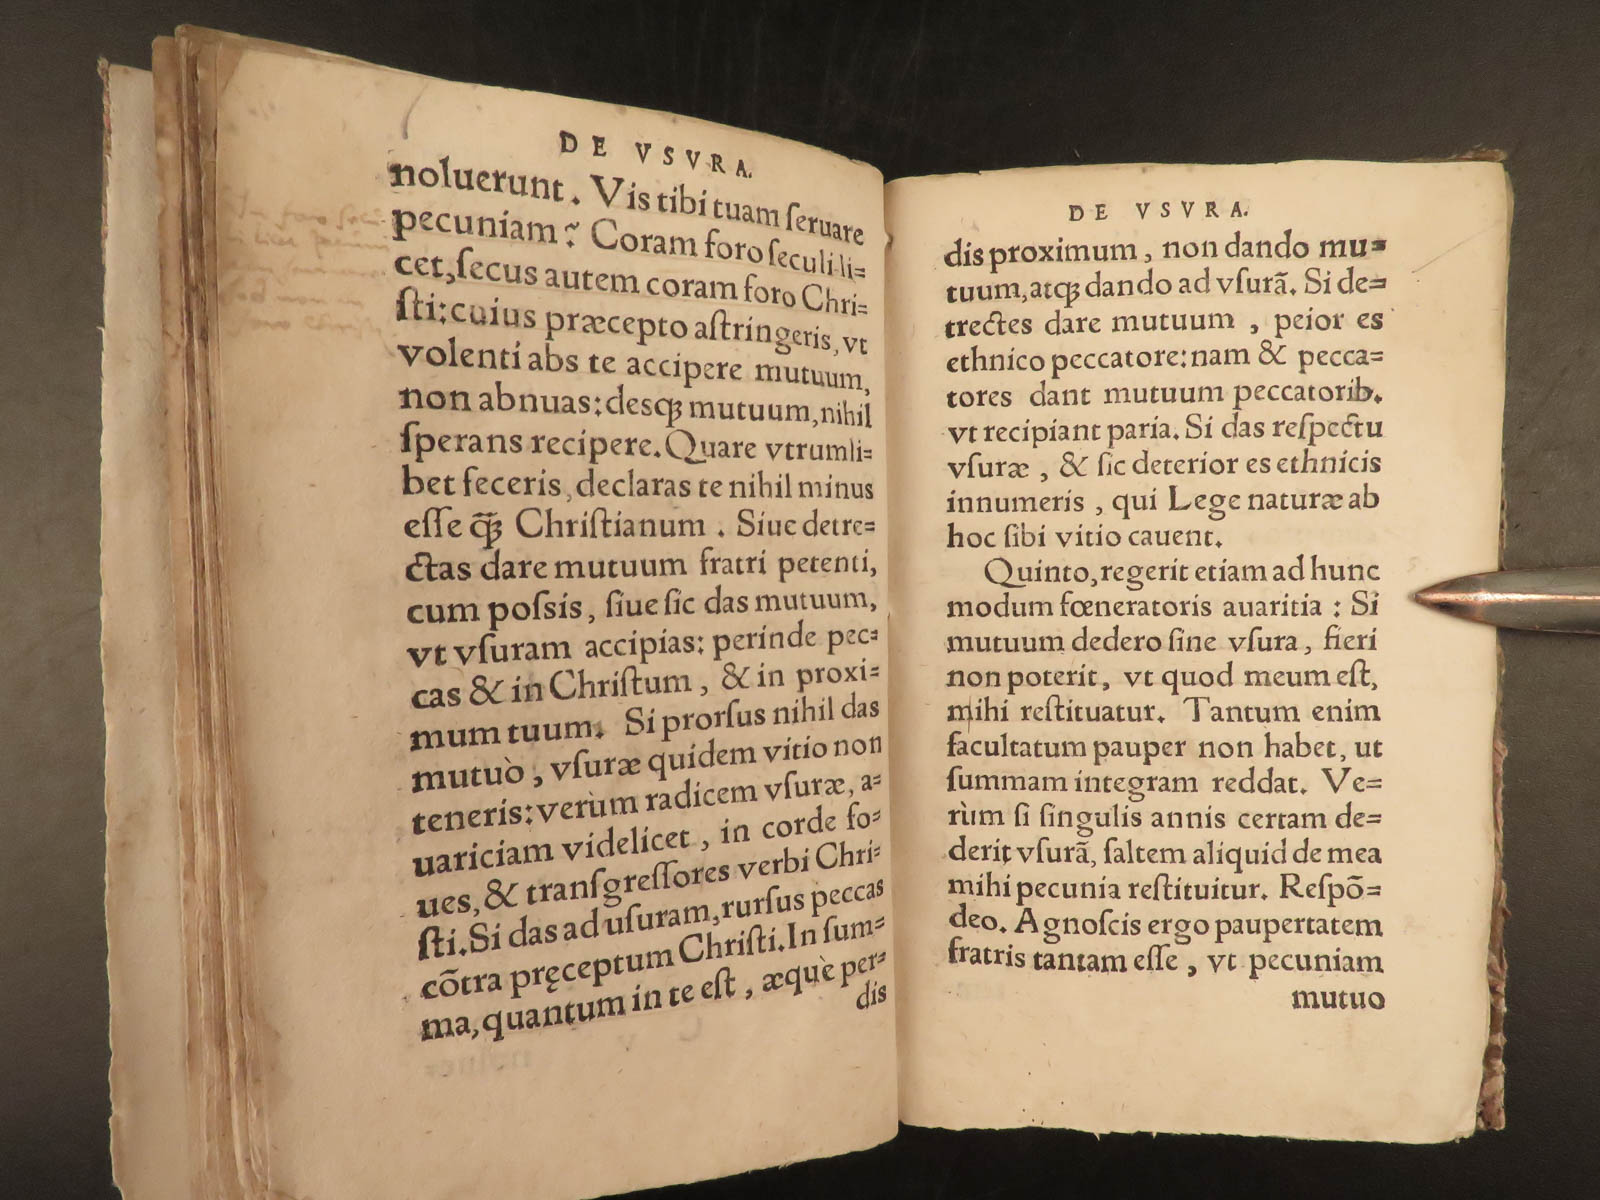 DE VSVRA.
noluerunt. Vis tibi tuam ſeruare
pecuniam? Coram foro ſeculi li=
cet, ſecus autem coram foro Chri=
ſti: cuius præcepto aſtringeris, vt
volenti abs te accipere mutuum,
non abnuas: desqꝫ mutuum, nihil
ſperans recipere. Quare vtrumli=
bet feceris, declaras te nihil minus
eſſe q̃ꝫ Chriſtianum. Siue detre=
ctas dare mutuum fratri petenti,
cum poſsis, ſiue ſic das mutuum,
vt vſuram accipias: perinde pec=
cas & in Chriſtum, & in proxi=
mum tuum. Si prorſus nihil das
mutuò, vſuræ quidem vitio non
teneris: verùm radicem vſuræ, a=
uariciam videlicet, in corde fo=
ues, & tranſgreſſores verbi Chri=
ſti. Si das ad uſuram, rurſus peccas
cõtra pręceptum Chriſti. In ſum=
ma, quantum in te eſt, æquè per=
dis
In foro ſeculi
licet
ſed non in
foro Chriſti
DE VSVRA.
dis proximum, non dando mu=
tuum, atqꝫ dando ad vſurã. Si de=
trectes dare mutuum, peior es
ethnico peccatore: nam & pecca=
tores dant mutuum peccatorib.
vt recipiant paria. Si das reſpectu
vſuræ, & ſic deterior es ethnicis
innumeris, qui Lege naturæ ab
hoc ſibi vitio cauent.
Quinto, regerit etiam ad hunc
modum fœneratoris auaritia: Si
mutuum dedero ſine vſura, fieri
non poterit, vt quod meum eſt,
mihi reſtituatur. Tantum enim
facultatum pauper non habet, ut
ſummam integram reddat. Ve=
rùm ſi ſingulis annis certam de=
derit vſurã, ſaltem aliquid de mea
mihi pecunia reſtituitur. Reſpõ=
deo. Agnoſcis ergo paupertatem
fratris tantam eſſe, vt pecuniam
mutuo